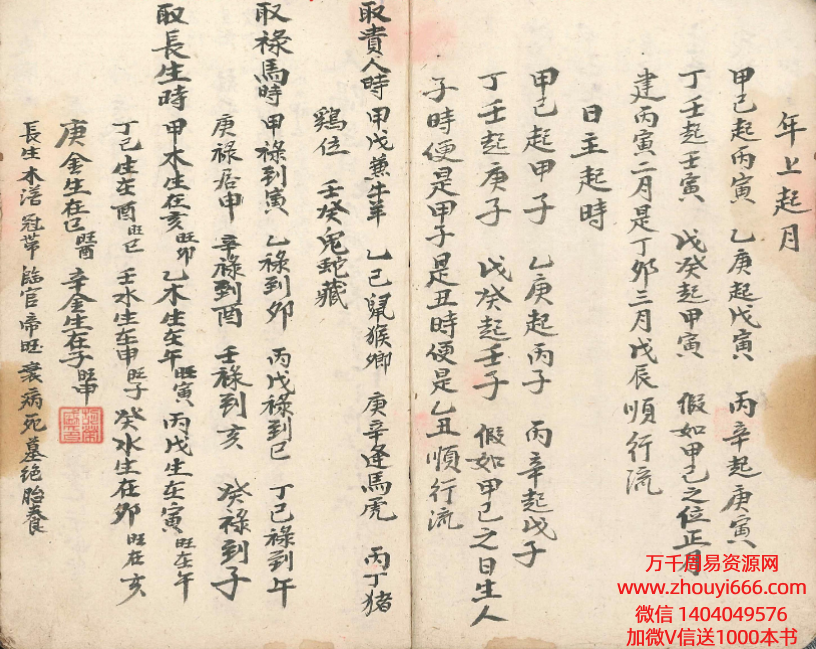 年上起月
甲己起丙寅 乙庚起戊寅 丙辛起庚寅
丁壬起壬寅 戊癸起甲寅 假如甲己之位正月
建丙寅二月是丁卯三月戊辰順行流
日主起時
甲己起甲子 乙庚起丙子 丙辛起戊子
丁壬起庚子 戊癸起壬子 假如甲己之日生人
子時便是甲子是丑時便是乙丑順行流
取貴人時 甲戊兼牛羊 乙己鼠猴鄉 庚辛逢馬虎 丙丁猪
鷄位 壬癸兔蛇藏
取祿馬時 甲祿到寅 乙祿到卯 丙戊祿到巳 丁己祿到午
庚祿居申 辛祿到酉 壬祿到亥 癸祿到子
取長生時 甲木生在亥旺卯 乙木生在午旺寅 丙戊生在寅旺在午
丁己生在酉旺巳 壬水生在申旺子 癸水生在卯旺在亥
庚金生在巳旺酉 辛金生在子旺申
長生 沐浴 冠帶 臨官 帝旺 衰病死墓絕胎養
万千周易资源网
www.zhouyi666.com
微信 1404049576
加微V信送1000本书